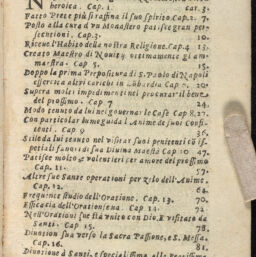 heroica. Cap. 1. car. 3.
Fatto Prete più si raffina il suo spirito. Cap. 2. 7.
Posto alla cura d'vn Monastero patisce gran per-
secutioni. Cap. 3. 10.
Riceue l'Habito della nostra Religione. Cap. 4 13.
Creato Maestro di Nouitij ottimamente gl'am-
maestra. Cap. 5. 15.
Doppo la prima Prepositura di S. Paolo di Napoli
essercita altri carichi in Lombardia Cap. 7. 20
Supera molti impedimenti nel procurar il bene
del prossimo. Cap. 7 24
Modo tenuto da lui nel gouernar le Case Cap. 8. 27.
Con particolar lume guida l'Anime de suoi Confi-
tenti. Cap. 9 36.
Stile da lui tenuto nel visitar suoi penitenti &
petiali fauori di sua Diuina Maestà Cap. 10 47.
Patisce molto, e volentieri per amore del prossimo
Cap. 11. 57.
Altre sue Sante operationi per zelo dell'Anime.
Cap. 12. 64.
Frequente studio dell'Oratione. Cap. 13. 70.
Efficacia dell'Orationi sua. Cap. 14. 72
Nell'Orationi sue stà vnito con Dio. E visitato da
Santi. Cap. 15. 78.
Diuotion sua verso la Sacra Passione, e S. Messa.
Cap. 16. 81.